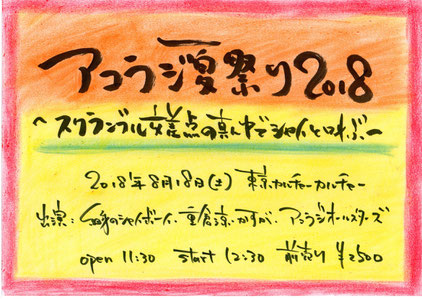 アコラジ夏祭り2018
〜スクランブル交差点の真ん中でシャイと叫ぶ〜
2018年8月18日(土) 東京カルチャーカルチャー
出演：シャイボーイ、重倉涼、かすが、アコラジオールスターズ
open 11:30 start 12:30 前売り ¥2500